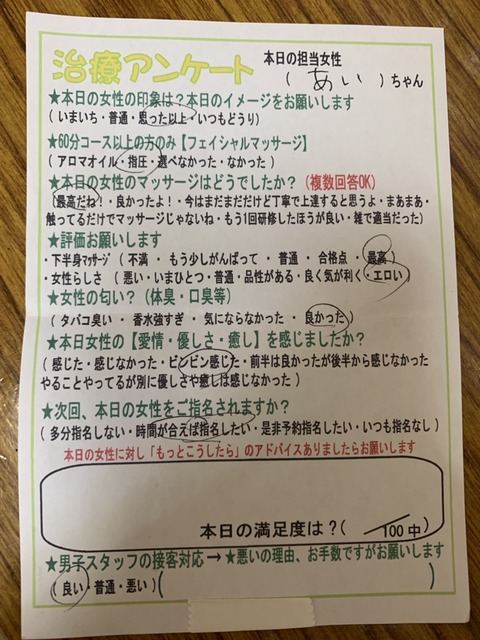 治療アンケート
本日の担当女性
( あい )ちゃん
★本日の女性の印象は？本日のイメージをお願いします
( いまいち・普通・思った以上・いつもどうり )
★60分コース以上の方のみ【フェイシャルマッサージ】
( アロマオイル・指圧・選べなかった・なかった )
★本日の女性のマッサージはどうでしたか？(複数回答OK)
(最高だね！・良かったよ！・今はまだまだだけど丁寧で上達すると思うよ・まあまあ・
触ってるだけでマッサージじゃないね・もう1回研修したほうが良い・雑で適当だった)
★評価お願いします
・下半身ﾏｯｻｰｼﾞ ( 不満 ・ もう少しがんばって ・ 普通 ・ 合格点 ・ 最高 )
・女性らしさ ( 悪い・いまひとつ・普通・品性がある・良く気が利く・エロい )
★女性の匂い？(体臭・口臭等)
( タバコ臭い ・ 香水強すぎ ・ 気にならなかった ・ 良かった )
★本日女性の【愛情・優しさ・癒し】を感じましたか？
( 感じた・感じなかった・ビンビン感じた・前半は良かったが後半から感じなかった
やることやってるが別に優しさや癒しは感じなかった )
★次回、本日の女性をご指名されますか？
( 多分指名しない・時間が合えば指名したい・是非予約指名したい・いつも指名なし )
本日の女性に対し「もっとこうしたら」のアドバイスありましたらお願いします
本日の満足度は？( / 100中 )
★男子スタッフの接客対応 → ★悪いの理由、お手数ですがお願いします
( 良い・普通・悪い ) ( )